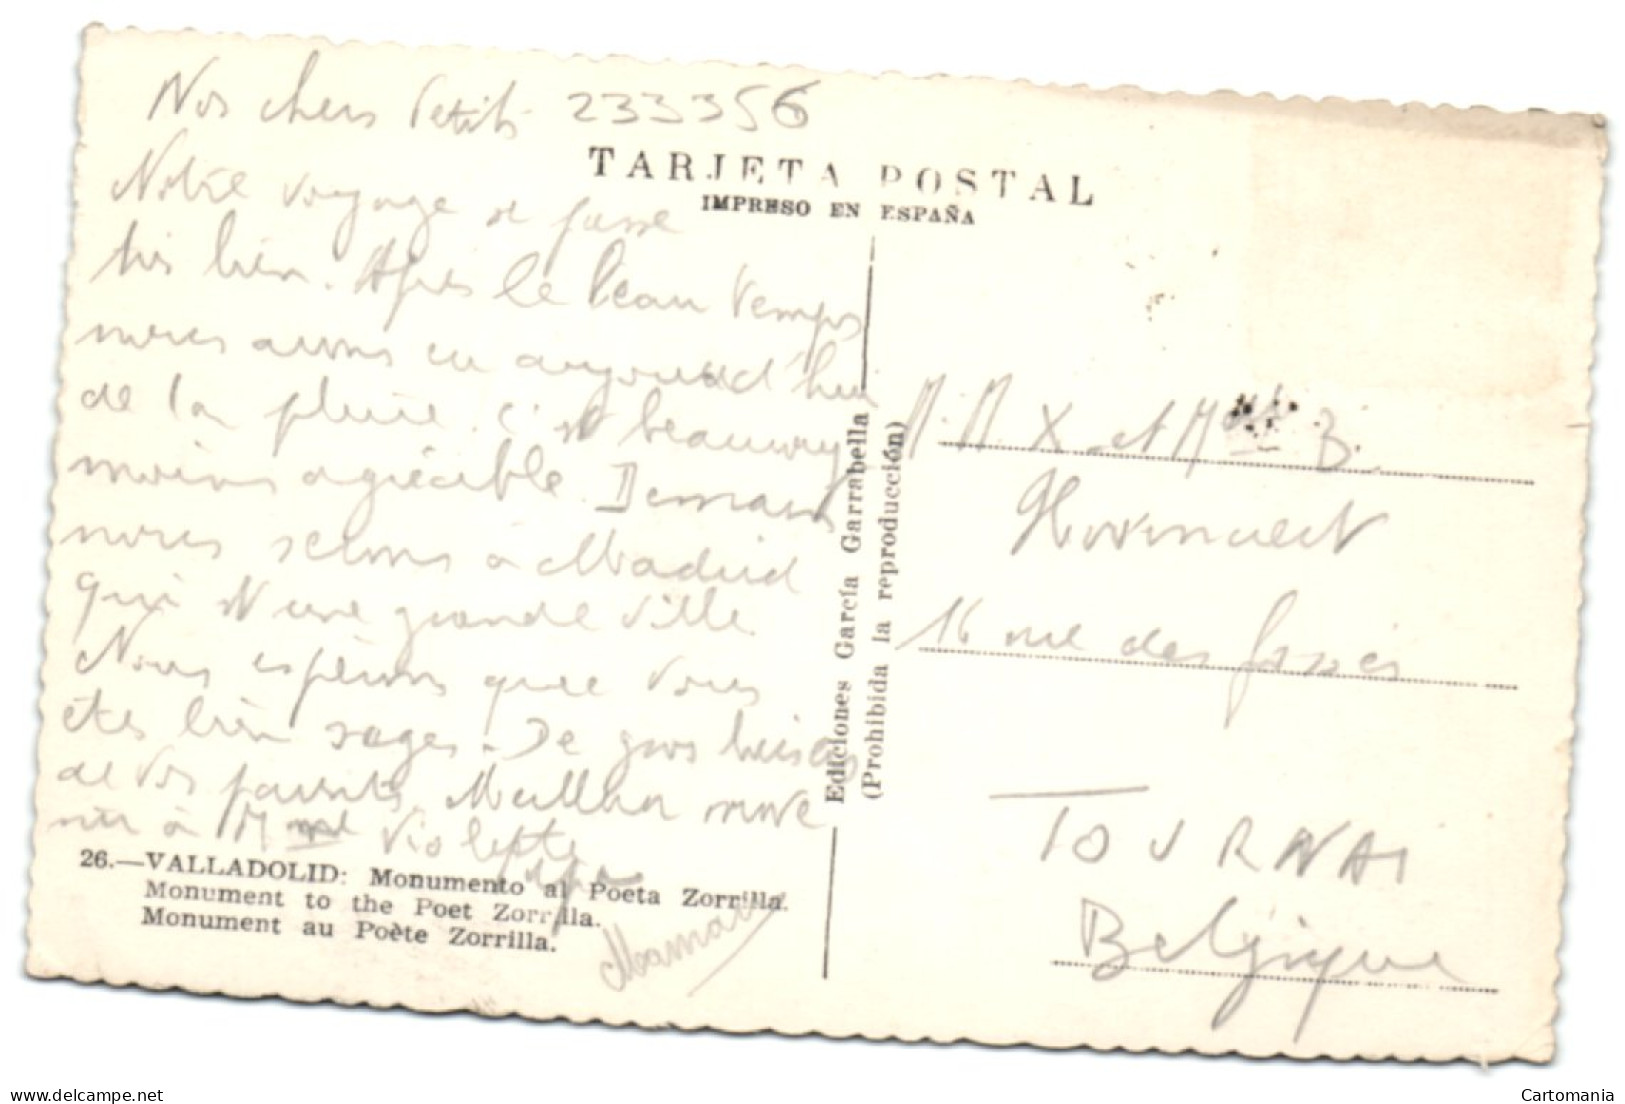 Nos chers Petits 233356
TARJETA POSTAL
IMPRESO EN ESPAÑA
Notre voyage se passe
très bien. Après le beau temps
nous avons eu aujourd'hui
de la pluie. C'est beaucoup
moins agréable. Demain
nous serons à Madrid
qui est une grande ville.
Nous espérons que vous
êtes bien sages. De gros baisers
de vos parents. Meilleur souve
nir à Mme Violette
Papa
Maman
26.—VALLADOLID: Monumento al Poeta Zorrilla.
Monument to the Poet Zorrilla.
Monument au Poète Zorrilla.
Ediciones García Garrabella
(Prohibida la reproducción)
M.M X et Melle B.
16 rue des fossés
TOURNAI
Belgique
delcampe.net
Cartomania